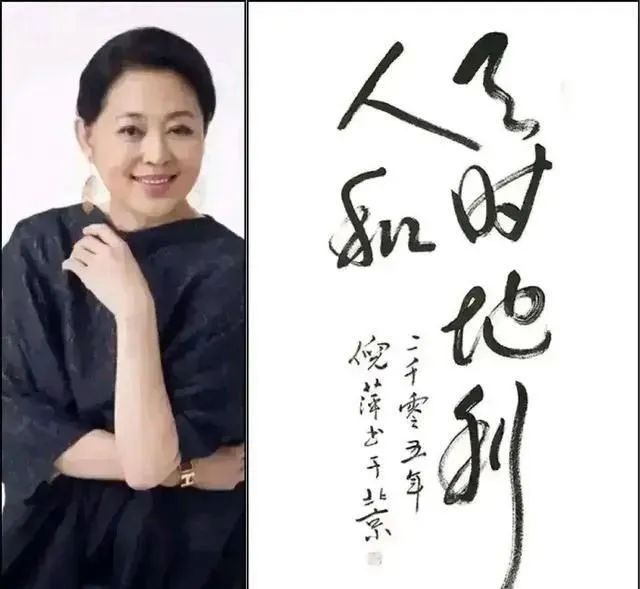 天时地利
人和
二千零五年
倪萍书于北京